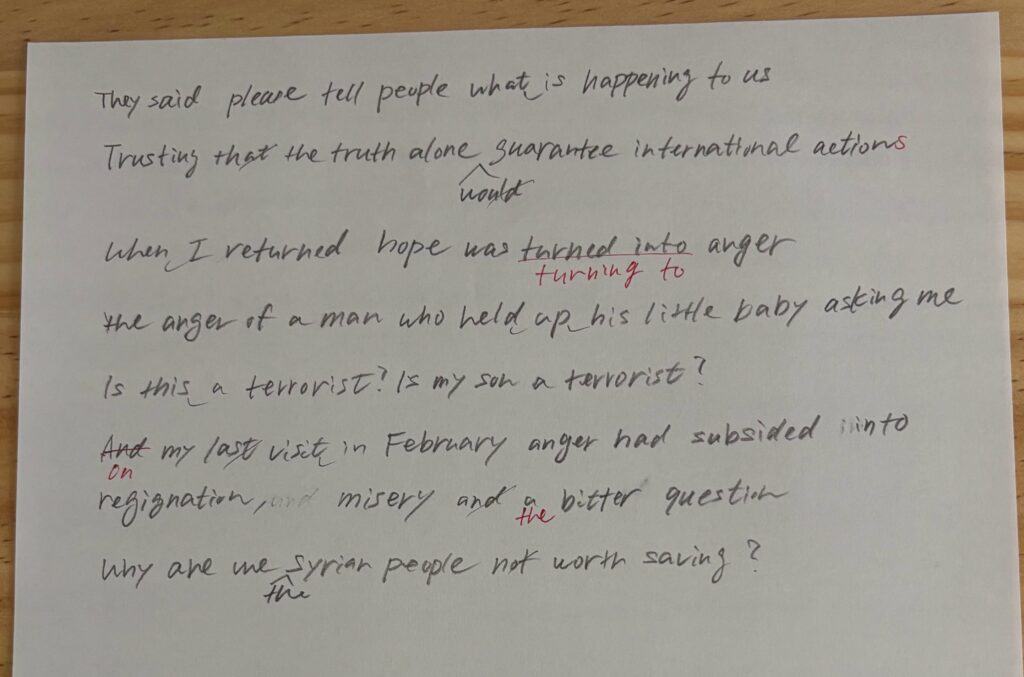 They said please tell people what is happening to us
Trusting that the truth alone guarantee international actions
would
When I returned hope was turned into anger
turning to
the anger of a man who held up his little baby asking me
Is this a terrorist? Is my son a terrorist?
And my last visit in February anger had subsided into
on
regignation, and misery and a bitter question
the
Why are we Syrian people not worth saving?
the